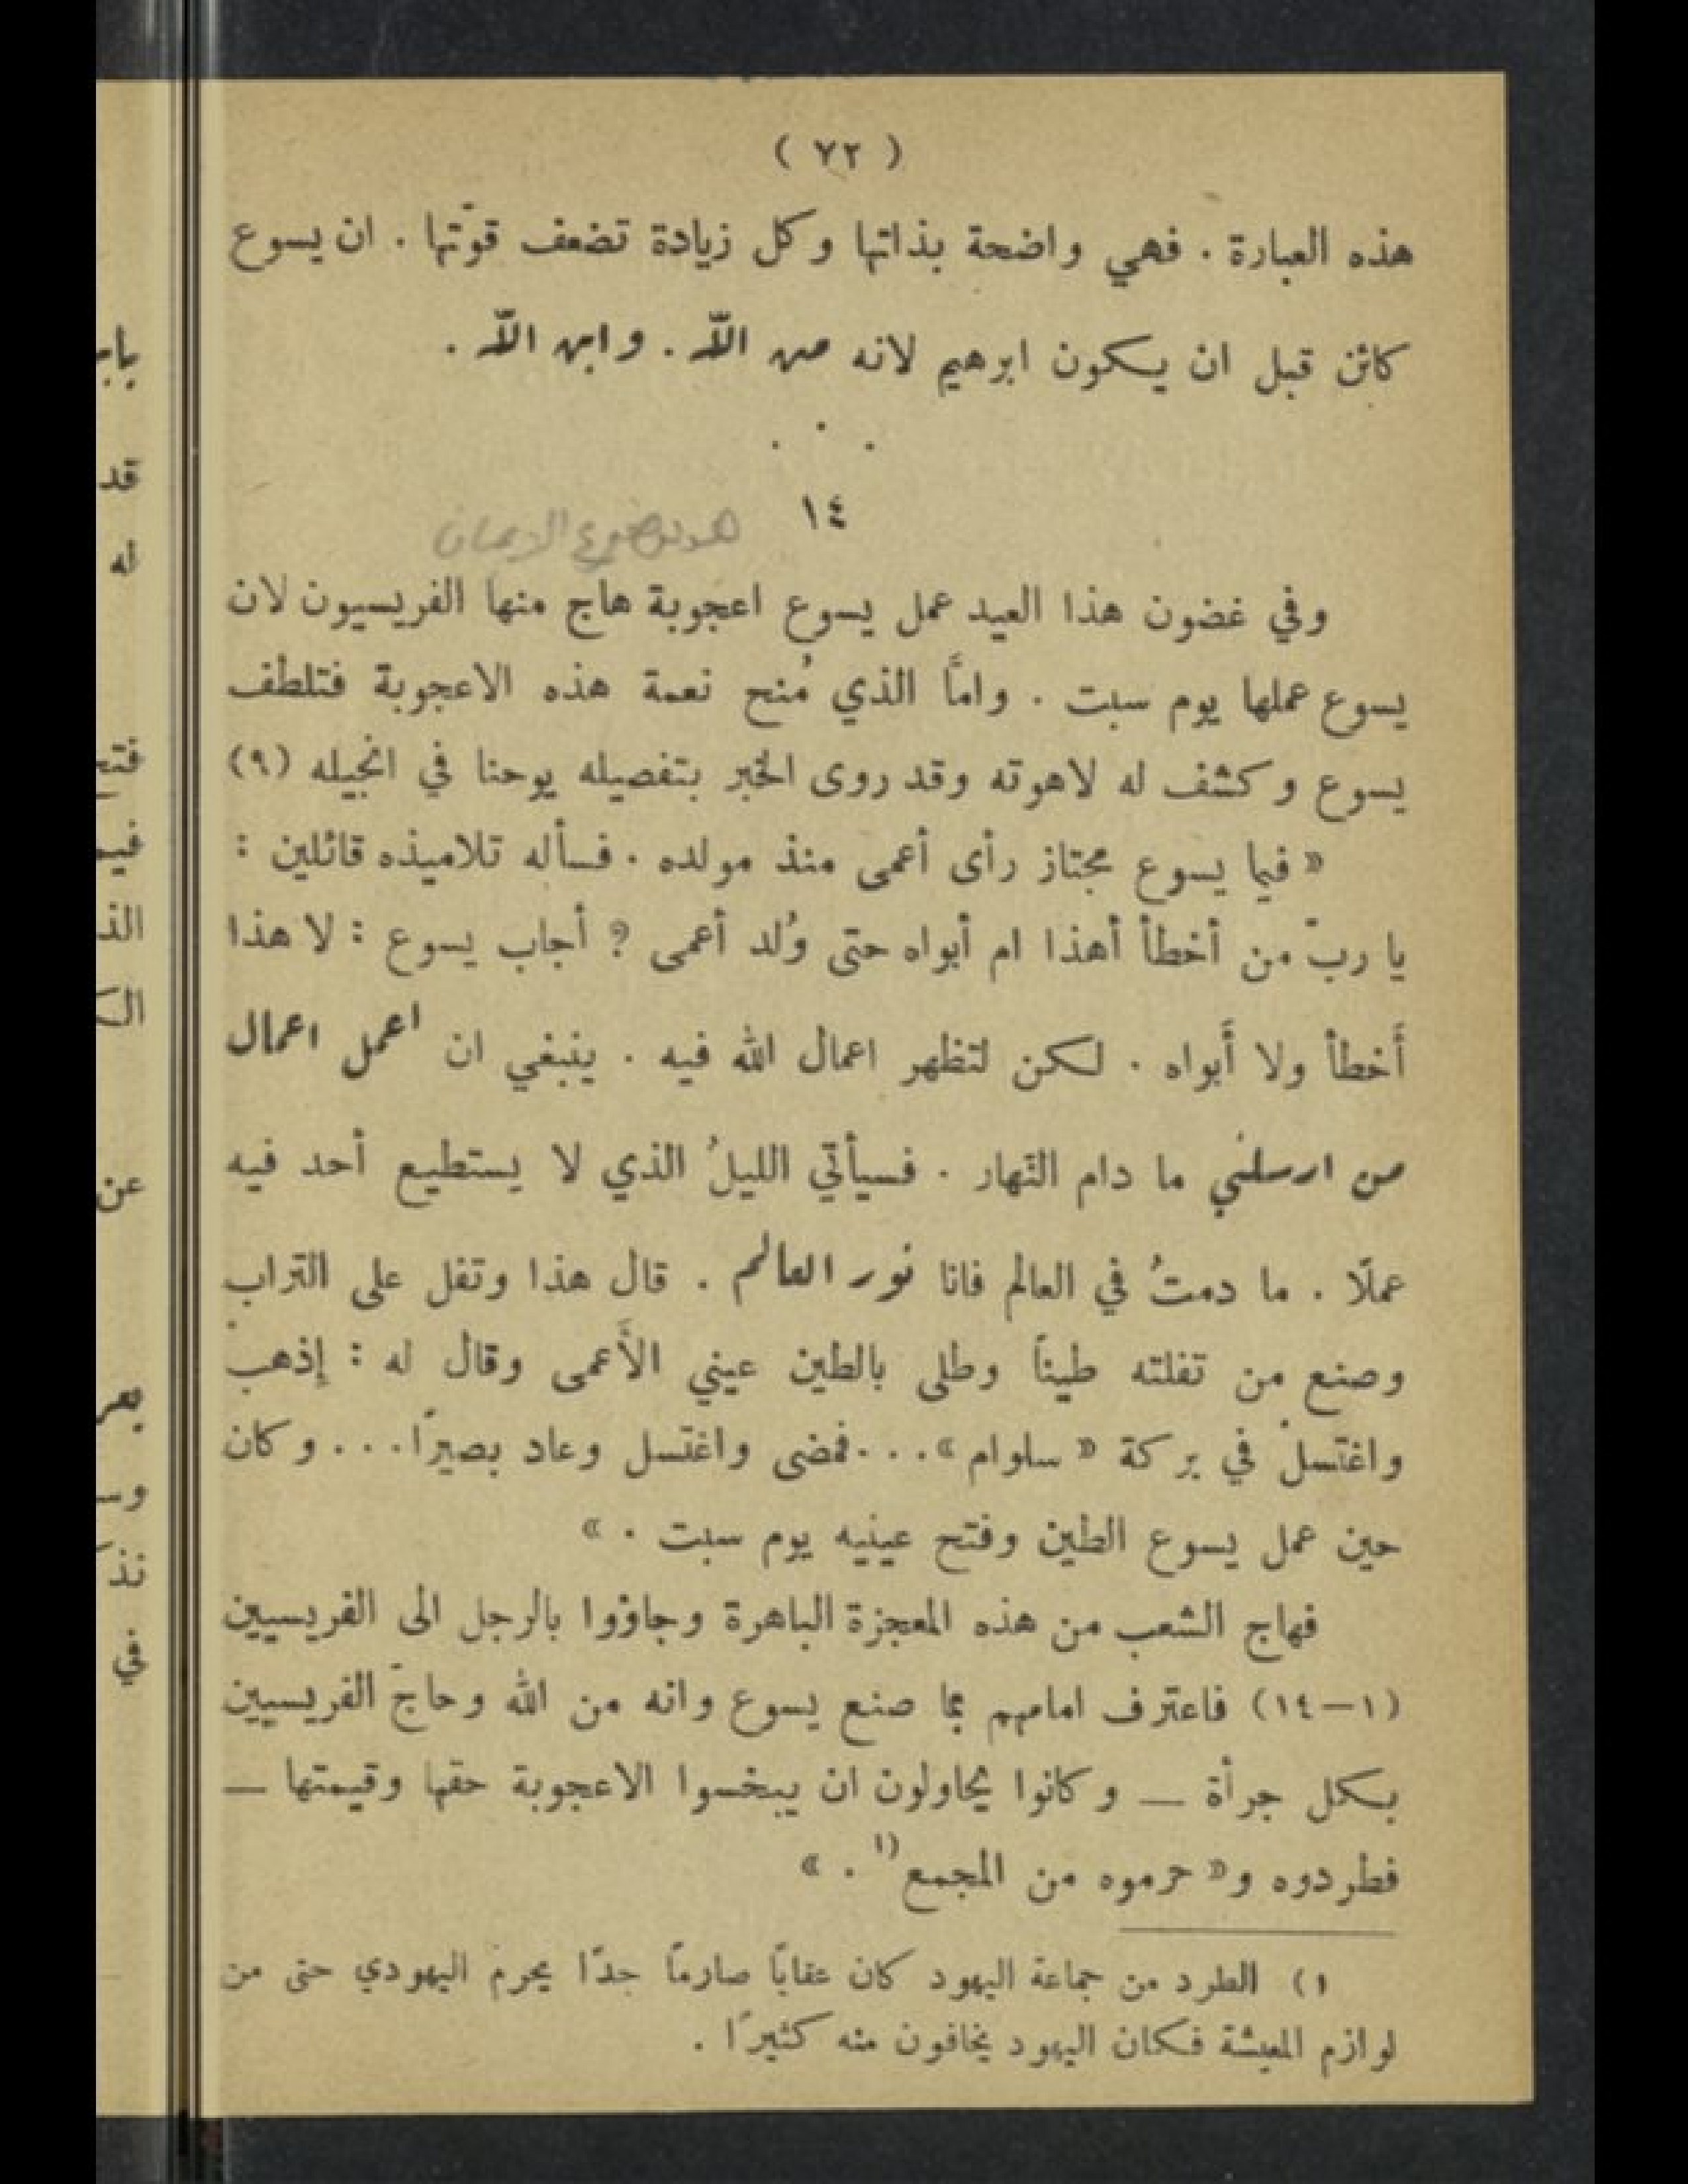 ( ٧٢ )
هذه العبارة . فهي واضحة بذاتها وكل زيادة تضعف قوّتها . ان يسوع
كائن قبل ان يكون ابرهيم لانه من اللّه . وابن اللّه .
. . .
١٤
موضوع الايمان
وفي غضون هذا العيد عمل يسوع اعجوبة هاج منها الفريسيون لان
يسوع عملها يوم سبت . وامَّا الذي مُنح نعمة هذه الاعجوبة فتلطف
يسوع وكشف له لاهوته وقد روى الخبر بتفصيله يوحنا في انجيله (٩)
« فيما يسوع مجتاز رأى أعمى منذ مولده . فسأله تلاميذه قائلين :
يا ربّ من أخطأ أهذا ام أبواه حتى وُلد أعمى ? أجاب يسوع : لا هذا
أَخطأ ولا أَبواه . لكن لتظهر اعمال الله فيه . ينبغي ان اعمل اعمال
من ارسلني ما دام النّهار . فسيأتي الليلُ الذي لا يستطيع أحد فيه
عملًا . ما دمتُ في العالم فانا نور العالم . قال هذا وتفل على التراب
وصنع من تفلته طيناً وطلى بالطين عيني الأَعمى وقال له : إذهبْ
واغتسلْ في بركة « سلوام » . . . فمضى واغتسل وعاد بصيرًا . . . وكان
حين عمل يسوع الطين وفتح عينيه يوم سبت . »
فهاج الشعب من هذه المعجزة الباهرة وجاؤوا بالرجل الى الفريسيين
(١–١٤) فاعترف امامهم بما صنع يسوع وانه من الله وحاجّ الفريسيين
بكل جرأة — وكانوا يحاولون ان يبخسوا الاعجوبة حقها وقيمتها —
فطردوه و« حرموه من المجمع ١) . »
١) الطرد من جماعة اليهود كان عقابًا صارمًا جدًّا يحرم اليهودي حتى من
لوازم المعيشة فكان اليهود يخافون منه كثيرًا .